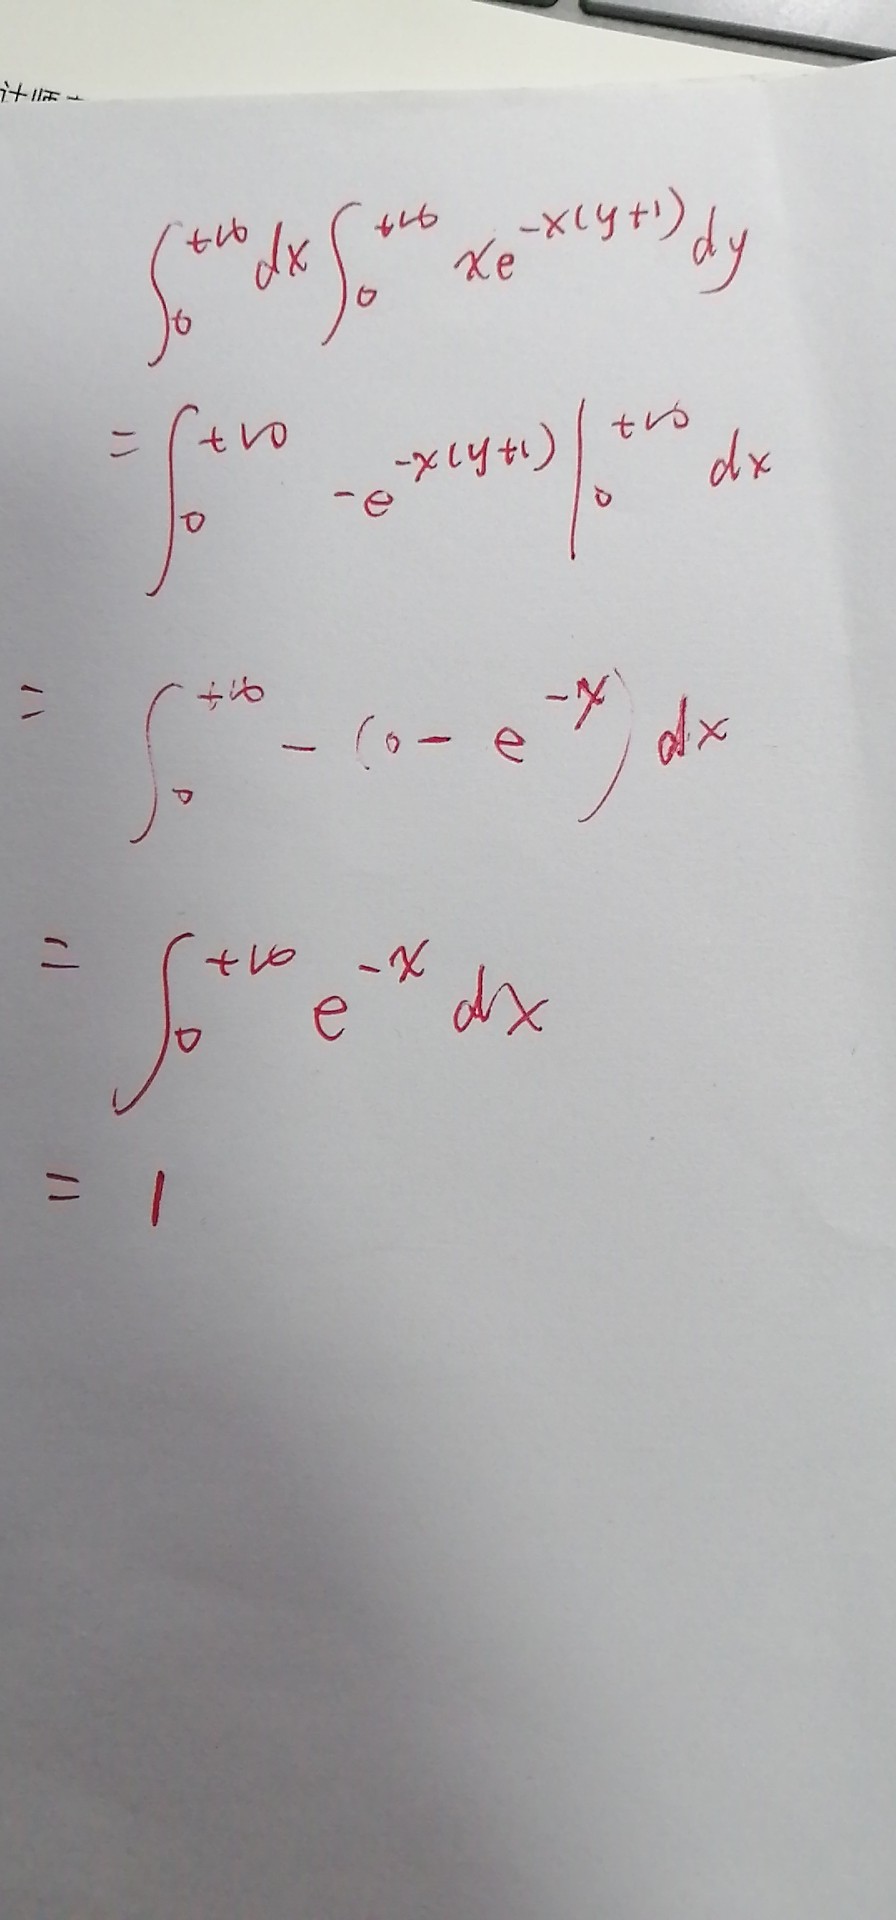 计师
∫₀^{+∞} dx ∫₀^{+∞} xe^{-x(y+1)} dy
= ∫₀^{+∞} -e^{-x(y+1)} |₀^{+∞} dx
= ∫₀^{+∞} -(0-e^{-x}) dx
= ∫₀^{+∞} e^{-x} dx
= 1